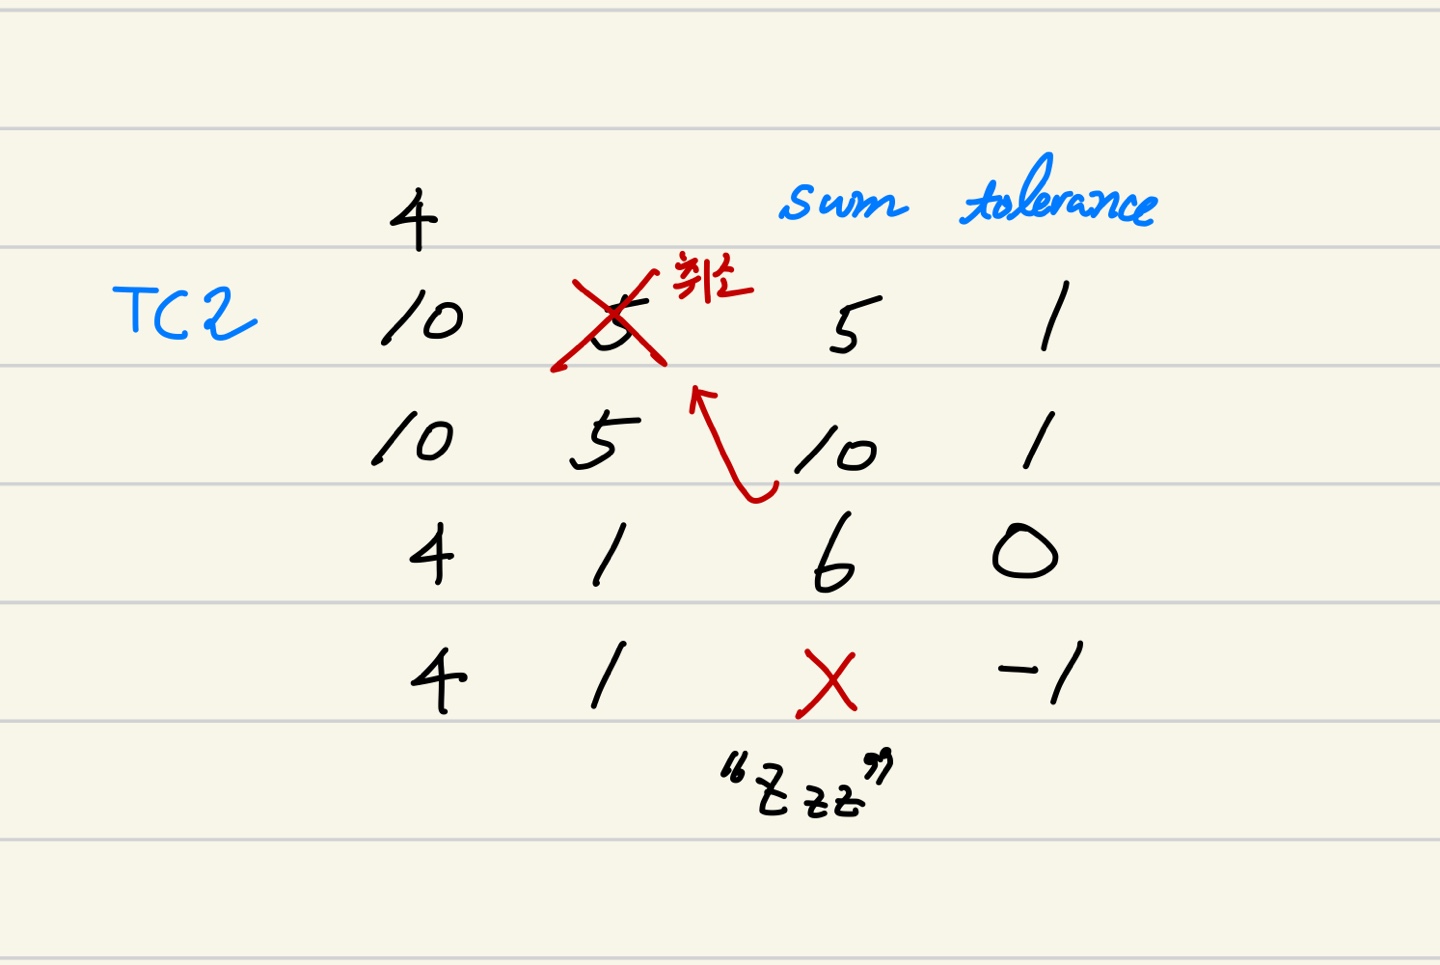 4 sum tolerance
TC2 10 5 취소 5 1
10 5 10 1
4 1 6 0
4 1 X -1
"Zzz"